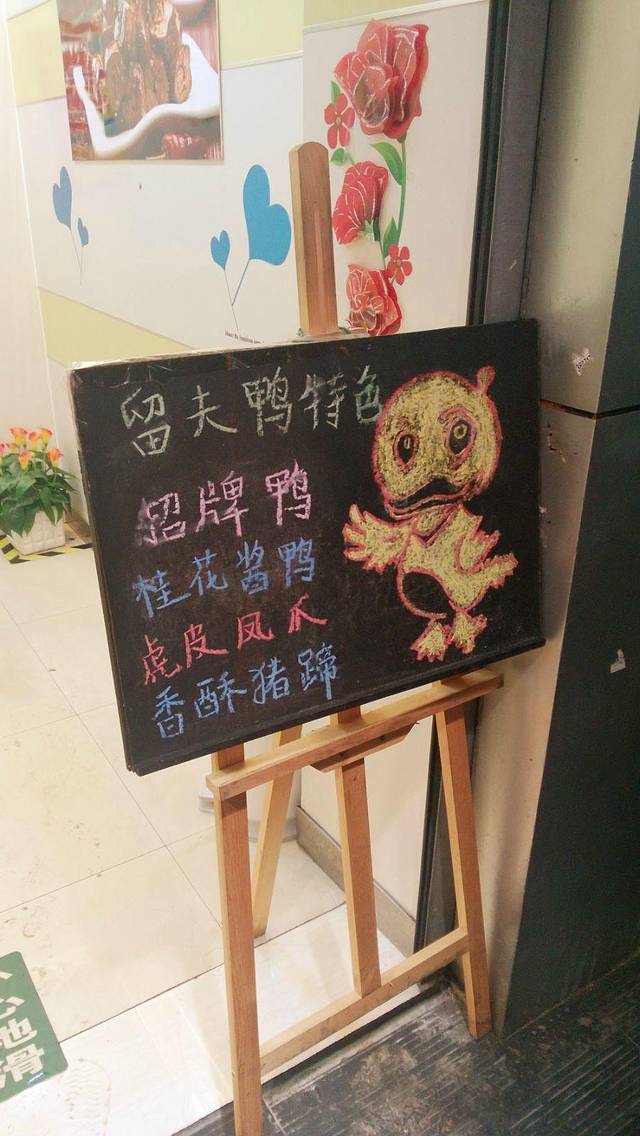 留夫鸭特色
招牌鸭
桂花酱鸭
虎皮凤爪
香酥猪蹄
心
地滑